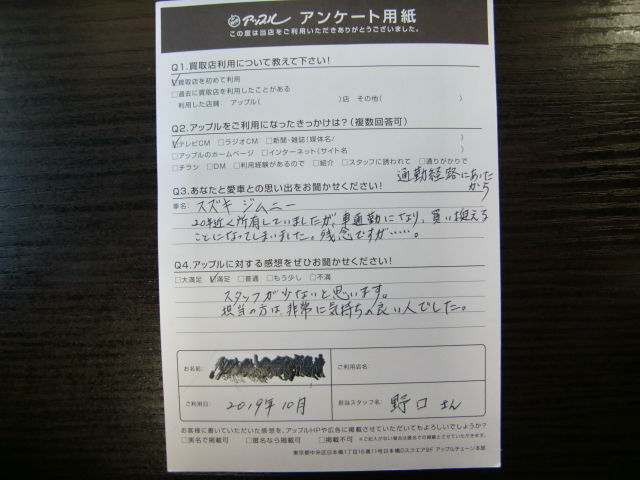 アップル アンケート用紙
この度は当店をご利用いただきありがとうございました。
Q1.買取店利用について教えて下さい!
☑買取店を初めて利用
□過去に買取店を利用したことがある
利用した店舗: アップル( )店 その他( )
Q2.アップルをご利用になったきっかけは?(複数回答可)
☑テレビCM □ラジオCM □新聞・雑誌(媒体名/ )
□アップルのホームページ □インターネット(サイト名 )
□チラシ □DM □利用経験があるので □紹介 □スタッフに誘われて □通りがかりで
通勤経路にあったから
Q3.あなたと愛車との思い出をお聞かせください!
車名: スズキ ジムニー
20年近く所有していましたが、車通勤になり、買い換える
ことになってしまいました。残念ですが……。
Q4.アップルに対する感想をぜひお聞かせください!
□大満足 ☑満足 □普通 □もう少し □不満
スタッフが少ないと思います。
担当の方は、非常に気持ちの良い人でした。
お名前:
ご利用店名:
ご利用日: 2019年10月
担当スタッフ名: 野口さん
お客様に書いていただいた感想を、アップルHPや広告に掲載させていただいてもよろしいでしょうか?
□実名で掲載可 □匿名なら掲載可 □掲載不可 ※ご記入がない場合は匿名での掲載とさせていただきます。
東京都中央区日本橋1丁目16番11号日本橋Dスクエア8F アップルチェーン本部